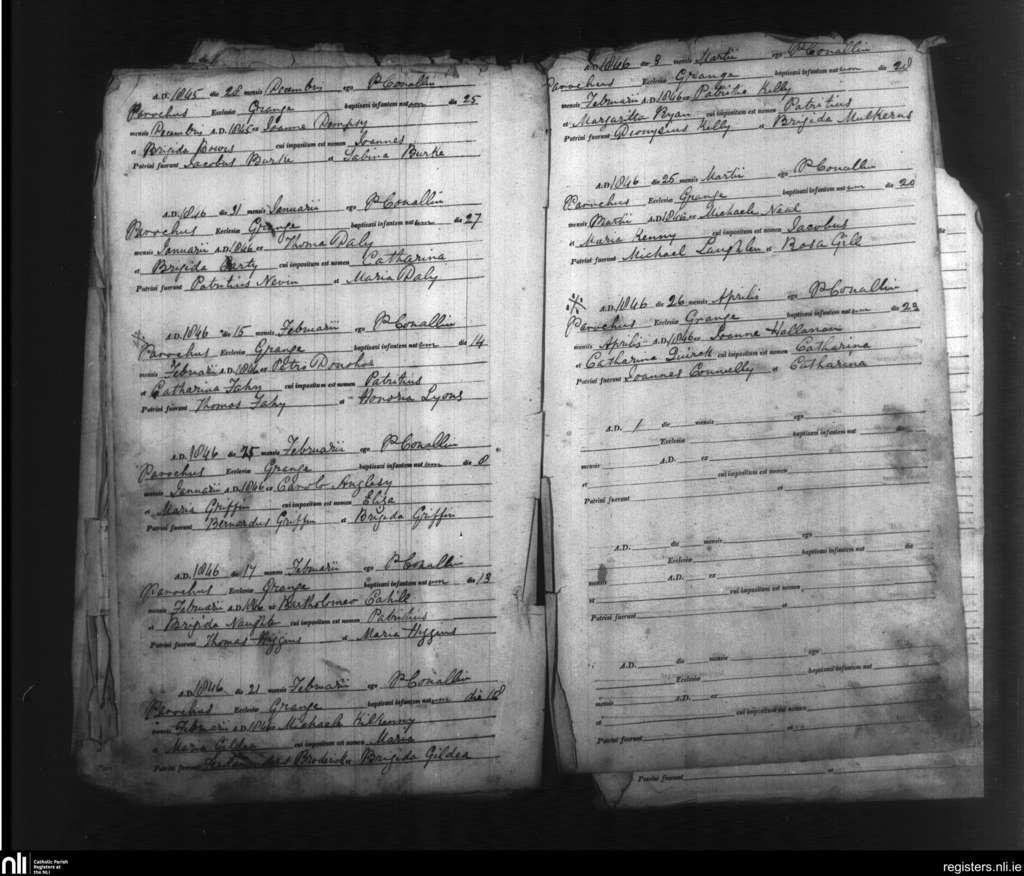 A.D. 1845 die 28 mensis Decembris ego P Conallin
Parochus Ecclesiæ Grange baptisavi infantem natum die 25
mensis Decembris A.D. 1845 ex Joanne Dempsy
et Brigida Bowes cui impositum est nomen Joannes
Patrini fuerunt Jacobus Burke et Sabina Burke
A.D. 1846 die 31 mensis Januarii ego P Conallin
Parochus Ecclesiæ Grange baptisavi infantem natam die 27
mensis Januarii A.D. 1846 ex Thoma Daly
et Brigida cui impositum est nomen Catharina
Patrini fuerunt Patritius Nevin et Maria Daly
A.D. 1846 die 15 mensis Februarii ego P Conallin
Parochus Ecclesiæ Grange baptisavi infantem natum die 14
mensis Februarii A.D. 1846 ex Petro Donohoe
et Catharina Fahy cui impositum est nomen Patritius
Patrini fuerunt Thomas Fahy et Honoria Lyons
A.D. 1846 die 25 mensis Februarii ego P Conallin
Parochus Ecclesiæ Grange baptisavi infantem natam die 8
mensis Januarii A.D. 1846 ex Carolo Anglesy
et Maria Griffin cui impositum est nomen Eliza
Patrini fuerunt Bernardus Griffin et Brigida Griffin
A.D. 1846 die 17 mensis Februarii ego P Conallin
Parochus Ecclesiæ Grange baptisavi infantem natum die 13
mensis Februarii A.D. 1846 ex Bartholomeo Cahill
et Brigida Naughten cui impositum est nomen Patritius
Patrini fuerunt Thomas Higgins et Maria Higgins
A.D. 1846 die 21 mensis Februarii ego P Conallin
Parochus Ecclesiæ Grange baptisavi infantem natam die 18
mensis Februarii A.D. 1846 ex Michaele Kilkenny
et Maria Gildea cui impositum est nomen Maria
Patrini fuerunt Broderick et Brigida Gildea
A.D. 1846 die 3 mensis Martii ego P Conallin
Parochus Ecclesiæ Grange baptisavi infantem natum die 28
mensis Februarii A.D. 1846 ex Patritio Kelly
et Margaritta Ryan cui impositum est nomen Patritius
Patrini fuerunt Dionysius Kelly et Brigida Mulkerns
A.D. 1846 die 25 mensis Martii ego P Conallin
Parochus Ecclesiæ Grange baptisavi infantem natum die 20
mensis Martii A.D. 1846 ex Michaele Neal
et Maria Kenny cui impositum est nomen Jacobus
Patrini fuerunt Michael Laughlen et Rosa Gill
A.D. 1846 die 26 mensis Aprilis ego P Conallin
Parochus Ecclesiæ Grange baptisavi infantem natam die 23
mensis Aprilis A.D. 1846 ex Joanne Hallanan
et Catharina Quirck cui impositum est nomen Catharina
Patrini fuerunt Joannes Connelly et Catharina
A.D. 1 die mensis ego
Ecclesiæ baptisavi infantem nat die
mensis A.D. ex
et cui impositum est nomen
Patrini fuerunt et
A.D. die mensis ego
Ecclesiæ baptisavi infantem nat die
mensis A.D. ex
et cui impositum est nomen
Patrini fuerunt et
A.D. die mensis ego
Ecclesiæ baptisavi infantem nat
mensis A.D. ex
et cui impositum est nomen
Patrini fuerunt et
Patrini fuerunt et
nli Catholic Parish
Registers at
the NLI
registers.nli.ie